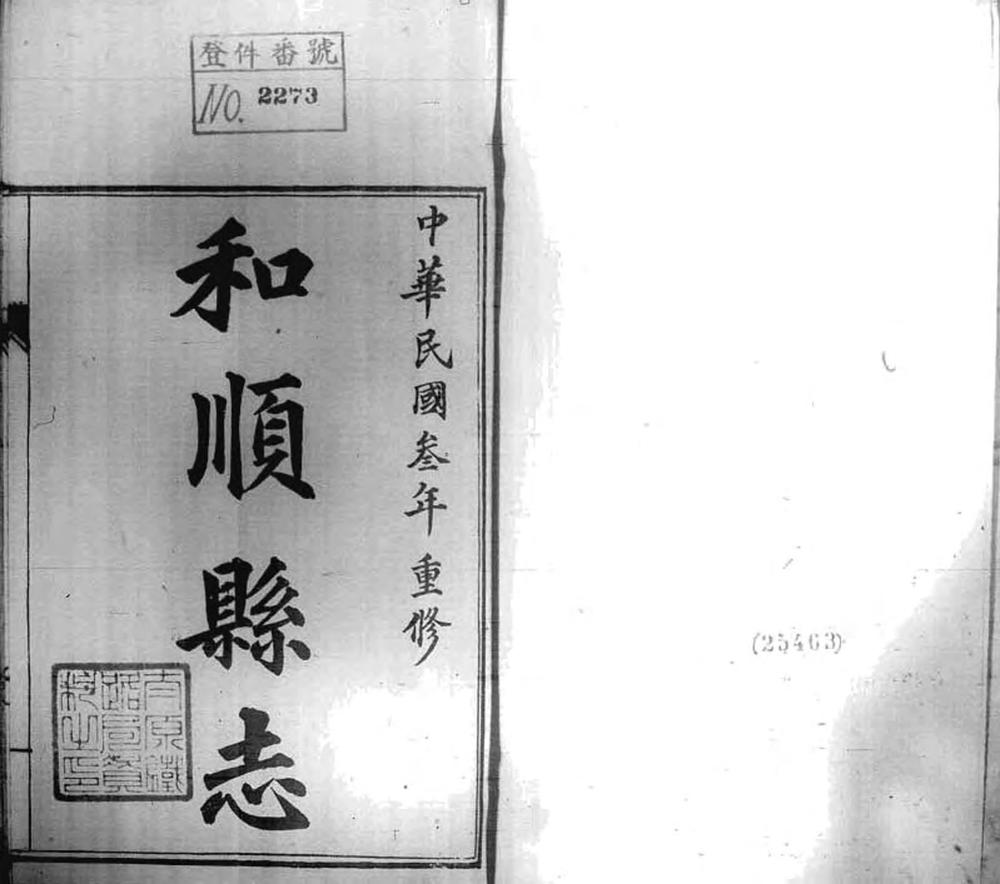 登件番號
No. 2273
中華民國叁年重修
和順縣志
(25463)